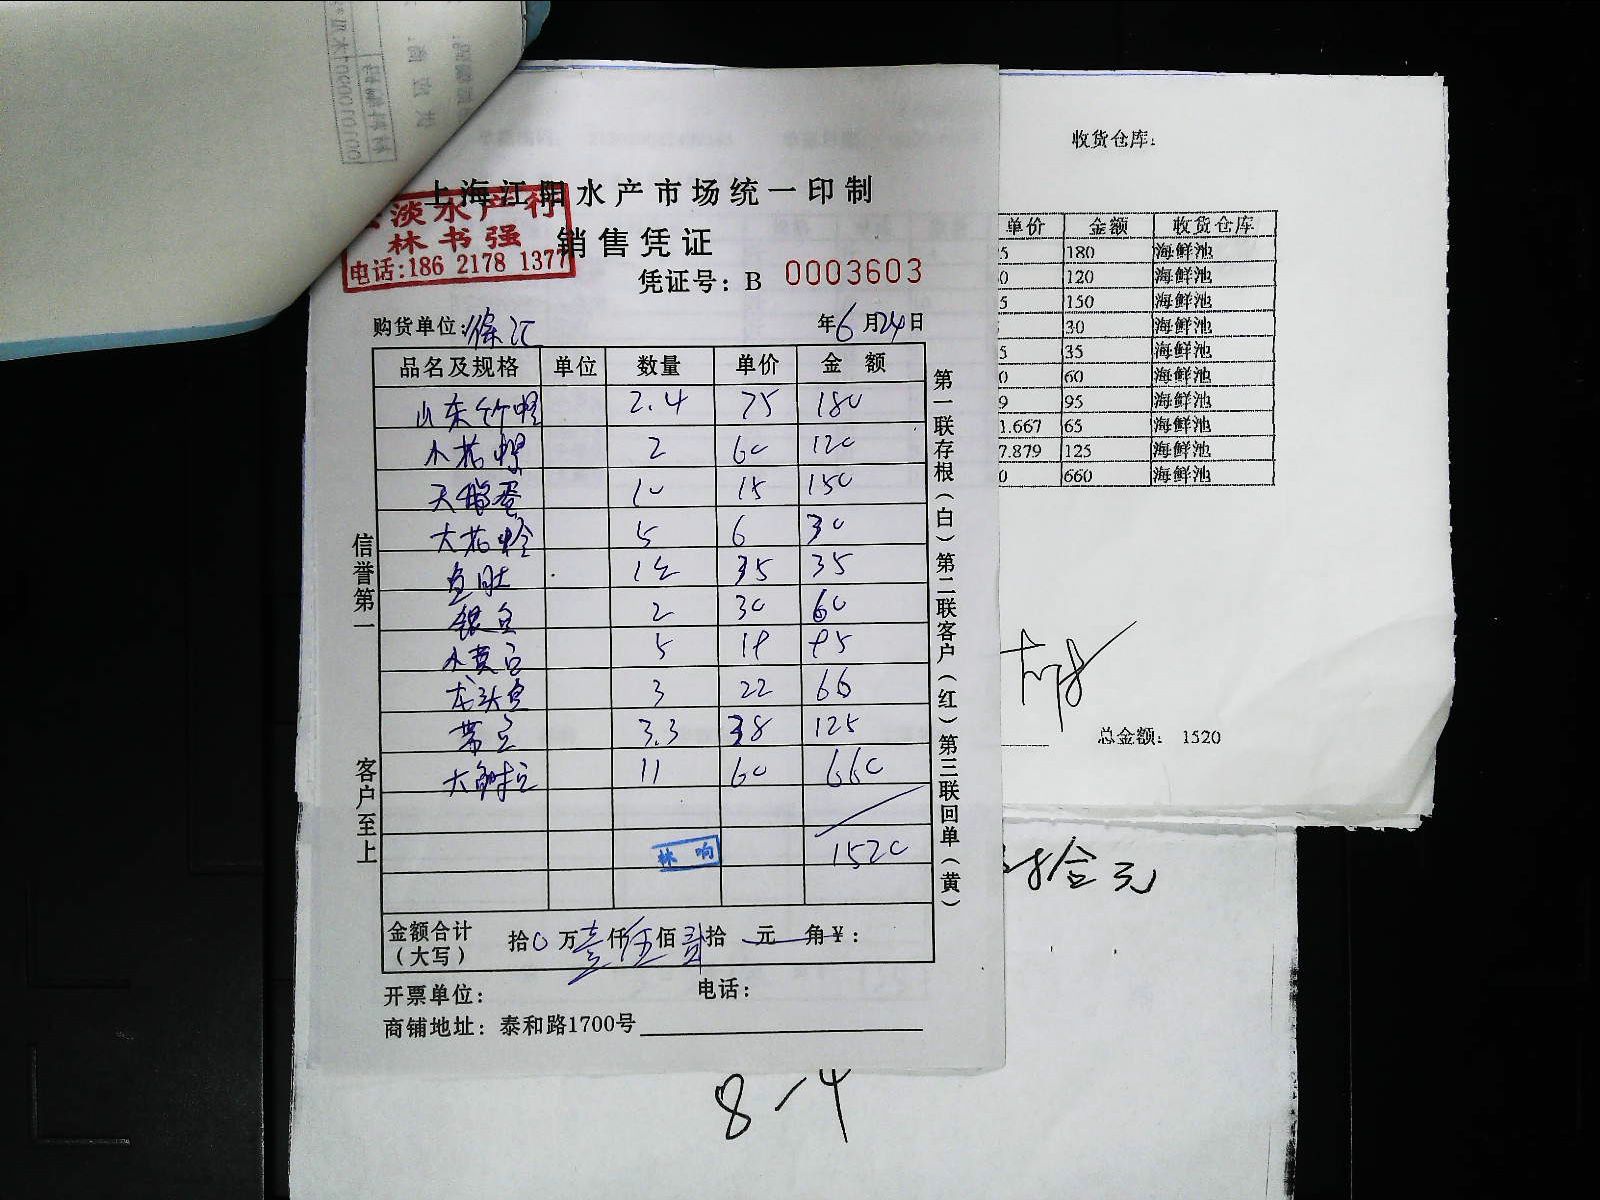 上海江阳水产市场统一印制
淡水产行
林书强
电话:186 2178 1377
销售凭证
凭证号: B 0003603
购货单位: 徐汇 年6月24日
品名及规格 单位 数量 单价 金额
山东竹蛏 2.4 75 180
小花螺 2 60 120
天鹅蛋 10 15 150
大花蛤 5 6 30
鱼肚 35 35
银鱼 2 30 60
小黄鱼 5 19 95
龙头鱼 3 22 66
带鱼 3.3 38 125
大 11 60 660
林响 1520
金额合计(大写) 拾0万壹仟伍佰贰拾 元 角¥:
开票单位: 电话:
商铺地址: 泰和路1700号
信誉第一
客户至上
第一联存根(白)第二联客户(红)第三联回单(黄)
收货仓库:
单价 金额 收货仓库
5 180 海鲜池
0 120 海鲜池
5 150 海鲜池
30 海鲜池
5 35 海鲜池
0 60 海鲜池
9 95 海鲜池
1.667 65 海鲜池
7.879 125 海鲜池
0 660 海鲜池
总金额: 1520
拾元
8-4